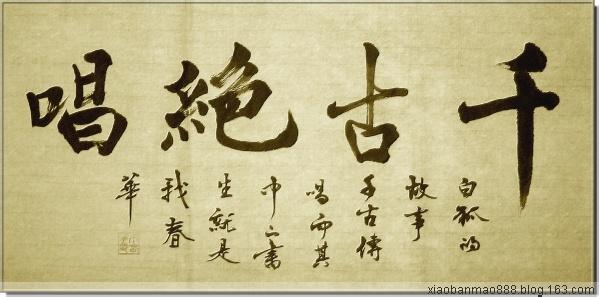 千古絕唱
白狐的
故事
千古傳
唱而其
中之書
生就是
我春
華
xiaobanmao888.blog.163.com